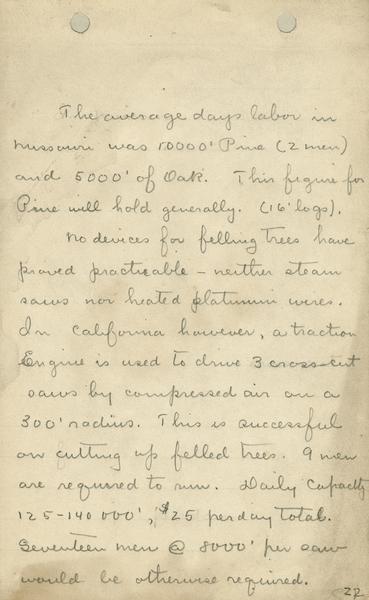 The average days labor in
Missouri was 10000' Pine (2 men)
and 5000' of Oak. This figure for
Pine will hold generally. (16' logs).
No devices for felling trees have
proved practicable – neither steam
saws nor heated platinum wires.
In California however, a traction
Engine is used to drive 3 cross-cut
saws by compressed air on a
300' radius. This is successful
on cutting up felled trees. 9 men
are required to run. Daily Capacity
125-140 000', $25 per day total.
Seventeen men @ 8000' per saw
would be otherwise required.
22